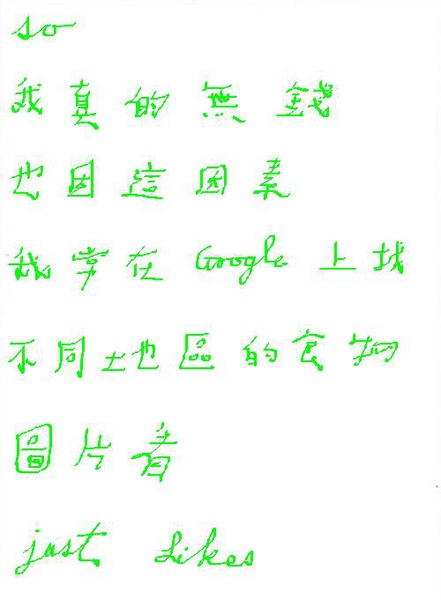 so
我真的無錢
也因這因素
我常在Google上找
不同地區的食物
圖片看
just Likes